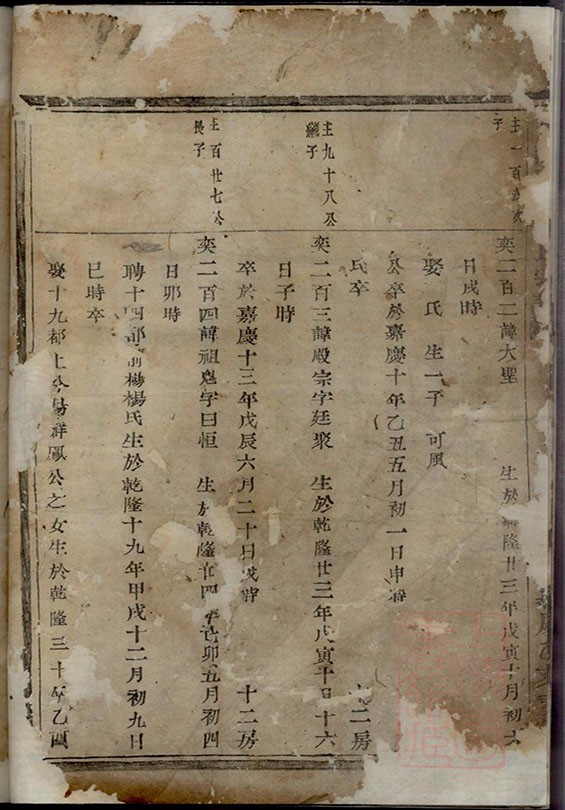 主一百
子
奕二百二諱大聖 生於乾隆廿三年戊寅十月初六
日戌時
娶 氏 生一子 可風
公卒於嘉慶十年乙丑五月初一日申時
氏卒 二房
主九十八公
繼子
奕二百三諱殿宗字廷聚 生於乾隆廿三年戊寅十月十六
日子時
卒於嘉慶十三年戊辰六月二十日戌時 十二房
主百廿七公
長子
奕二百四諱祖魁字曰恒 生於乾隆廿四年己卯五月初四
日卯時
聘十四都前楊楊氏生於乾隆十九年甲戌十二月初九日
巳時卒
娶十九都上 楊祥鳳公之女生於乾隆三十年乙酉